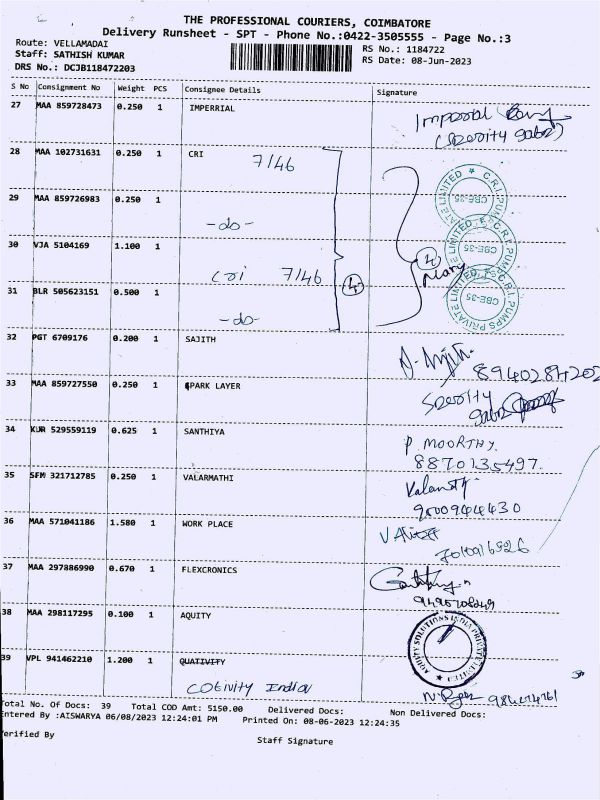 THE PROFESSIONAL COURIERS, COIMBATORE
Delivery Runsheet - SPT - Phone No.:0422-3505555 - Page No.:3
Route: VELLAMADAI
RS No.: 1184722
Staff: SATHISH KUMAR
RS Date: 08-Jun-2023
DRS No.: DCJB118472203
S No Consignment No Weight PCS Consignee Details Signature
27 MAA 859728473 0.250 1 IMPERRIAL
28 MAA 102731631 0.250 1 CRI 7/46
29 MAA 859726983 0.250 1
-do-
30 VJA 5104169 1.100 1
Cri 7/46 4 4
Mary
31 BLR 505623151 0.500 1
-do-
C.R.I. PUMPS PRIVATE LIMITED
CBE-35
32 PGT 6709176 0.200 1 SAJITH
8940284202
33 MAA 859727550 0.250 1 SPARK LAYER
34 KUR 529559119 0.625 1 SANTHIYA P. MOORTHY.
8870135497.
35 SFM 321712785 0.250 1 VALARMATHI
9500944430
36 MAA 571041186 1.580 1 WORK PLACE
37 MAA 297886990 0.670 1 FLEXCRONICS
38 MAA 298117295 0.100 1 AQUITY
AQUITY SOLUTIONS INDIA PRIVATE LIMITED
39 VPL 941462210 1.200 1 QUATIVITY
Cotivity India
Total No. Of Docs: 39 Total COD Amt: 5150.00 Delivered Docs: Non Delivered Docs:
Entered By :AISWARYA 06/08/2023 12:24:01 PM Printed On: 08-06-2023 12:24:35
Verified By
Staff Signature